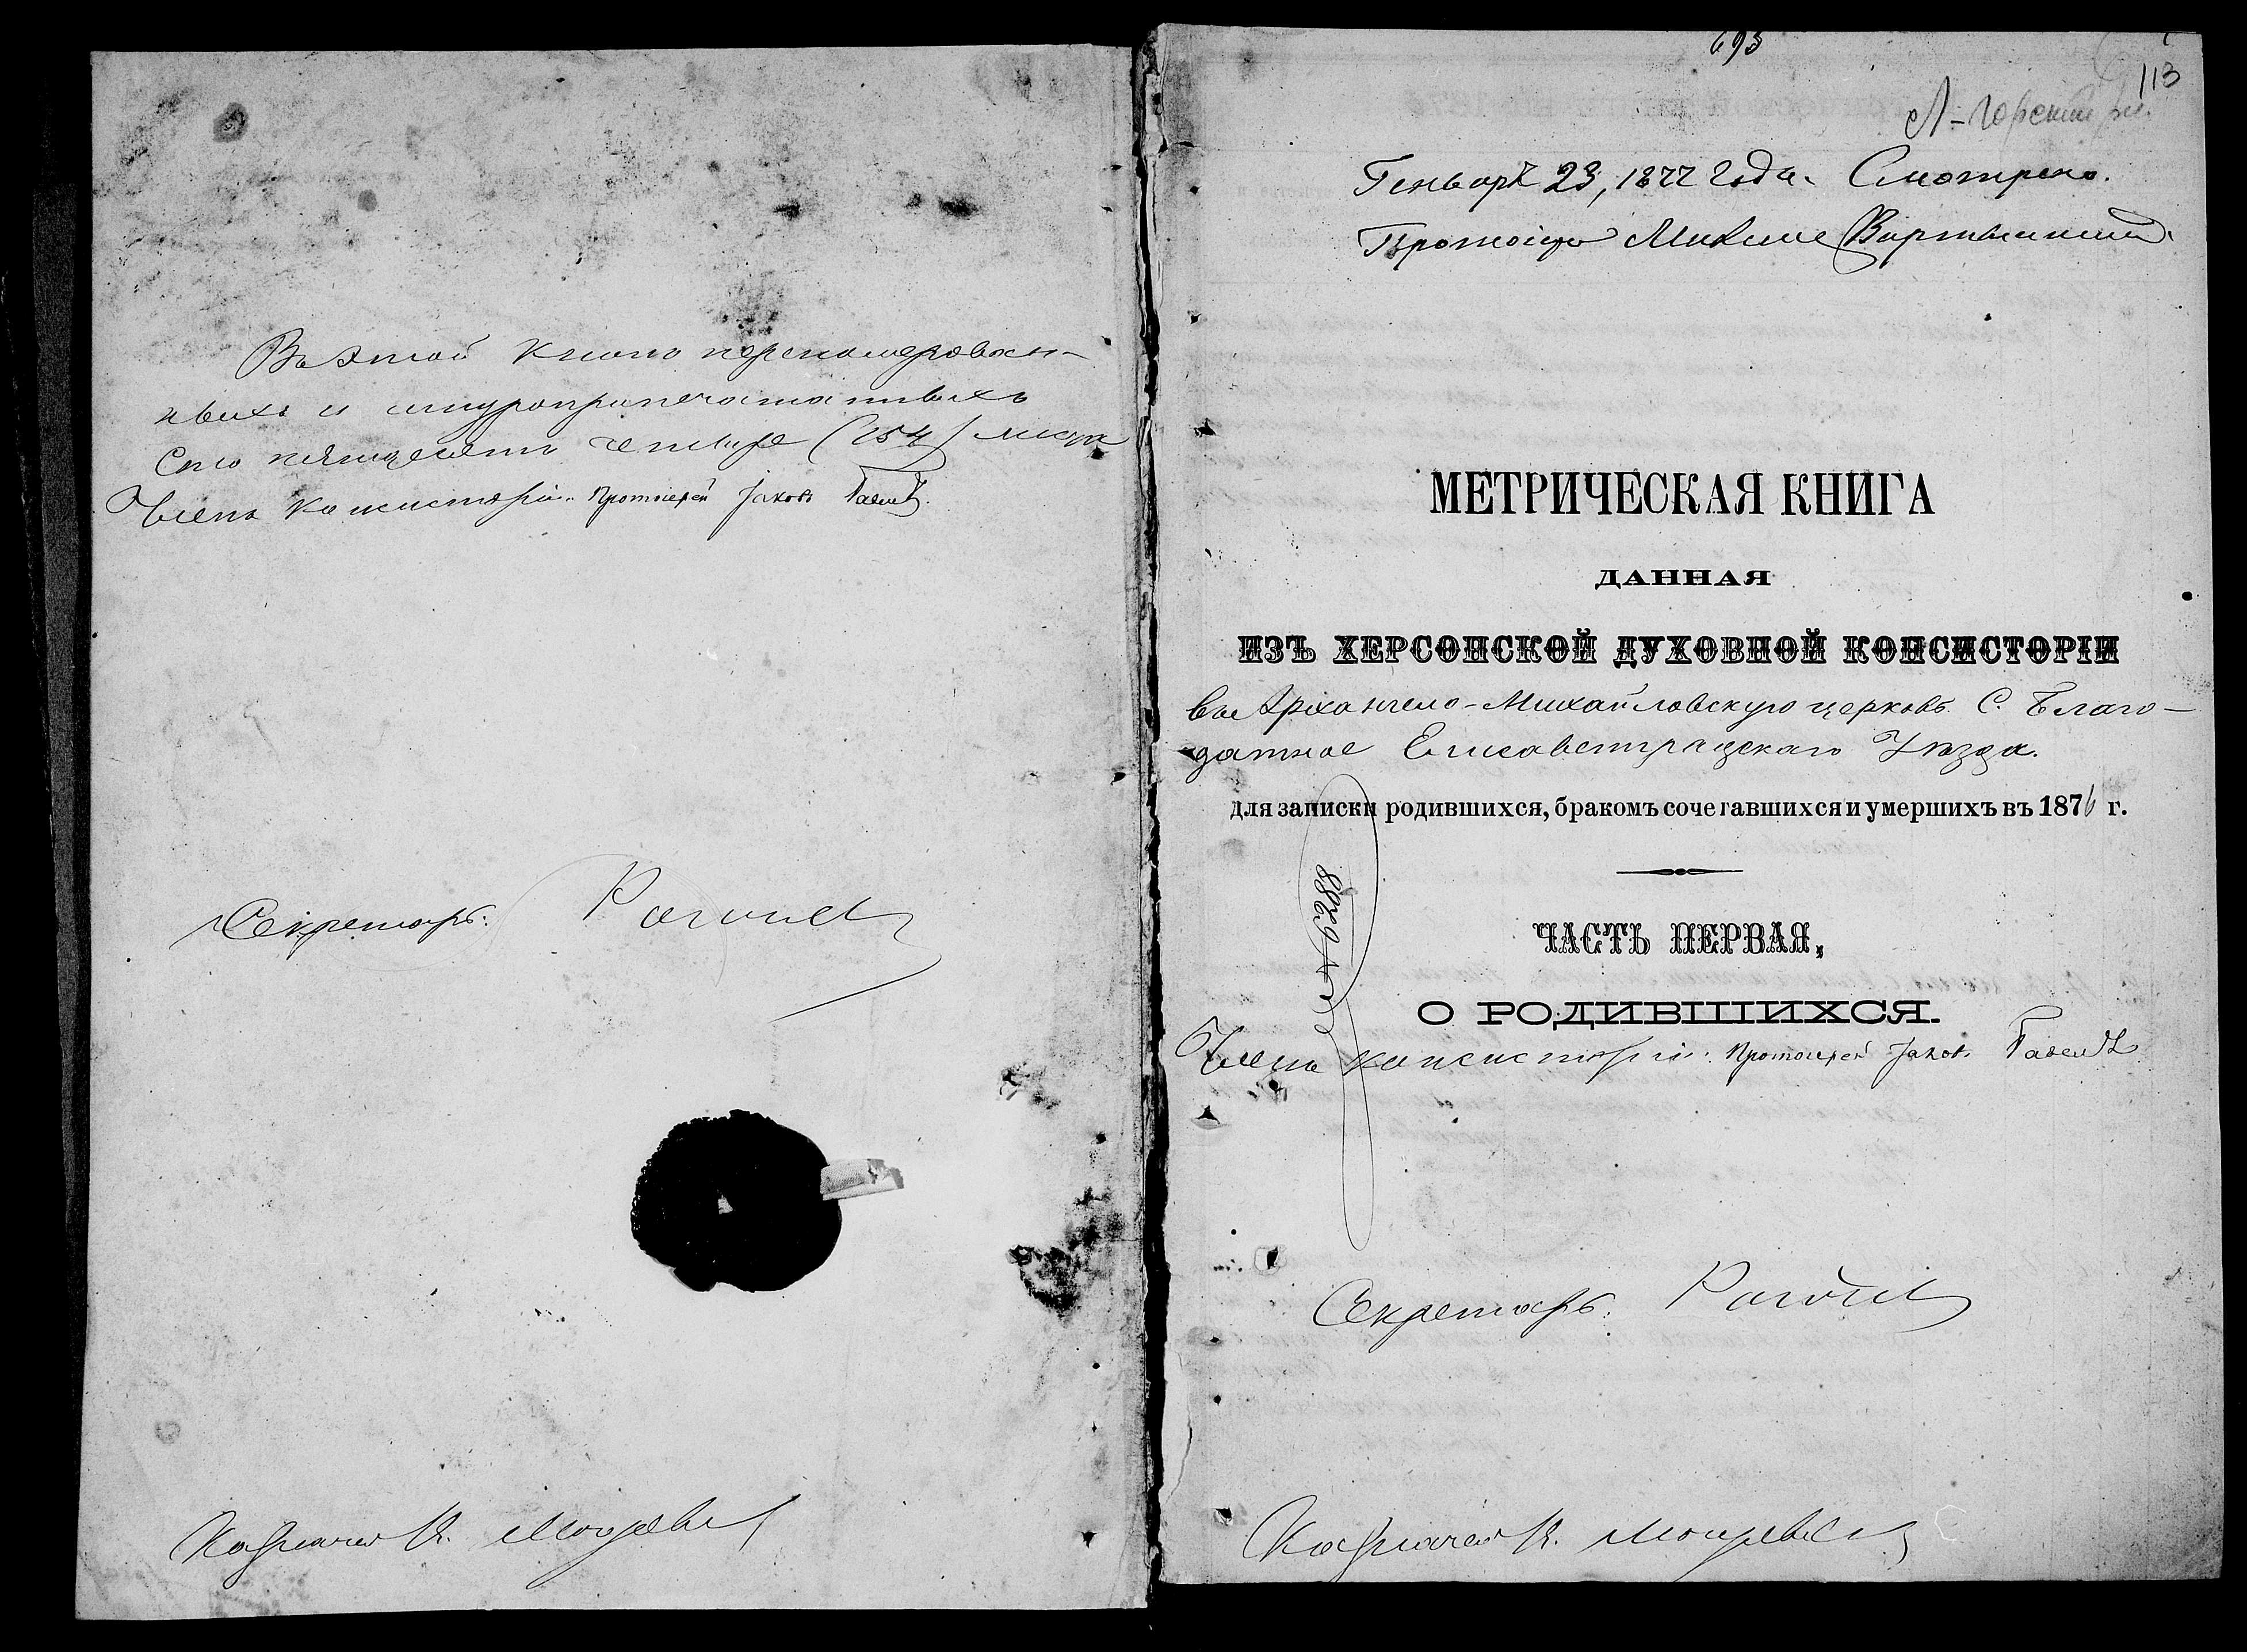 Въ этой книгѣ перенумерован-
ныхъ и шнуроприпечатанныхъ
Сто пятьдесятъ четыре (154) листа
Членъ консисторіи Протоіерей Іаковъ
Секретарь:
Казначей К.
693
113
Генваря 23, 1877 года. Смотрено.
Протоіерей
МЕТРИЧЕСКАЯ КНИГА
ДАННАЯ
ИЗЪ ХЕРСОНСКОЙ ДУХОВНОЙ КОНСИСТОРІИ
въ Архангело-Михайловскую церковь С. Благо-
датное Елисаветградскаго Уѣзда.
для записки родившихся, бракомъ сочетавшихся и умершихъ въ 1876 г.
ЧАСТЬ ПЕРВАЯ,
О РОДИВШИХСЯ.
Членъ консисторіи: Протоіерей Іаковъ
Секретарь:
Казначей К.